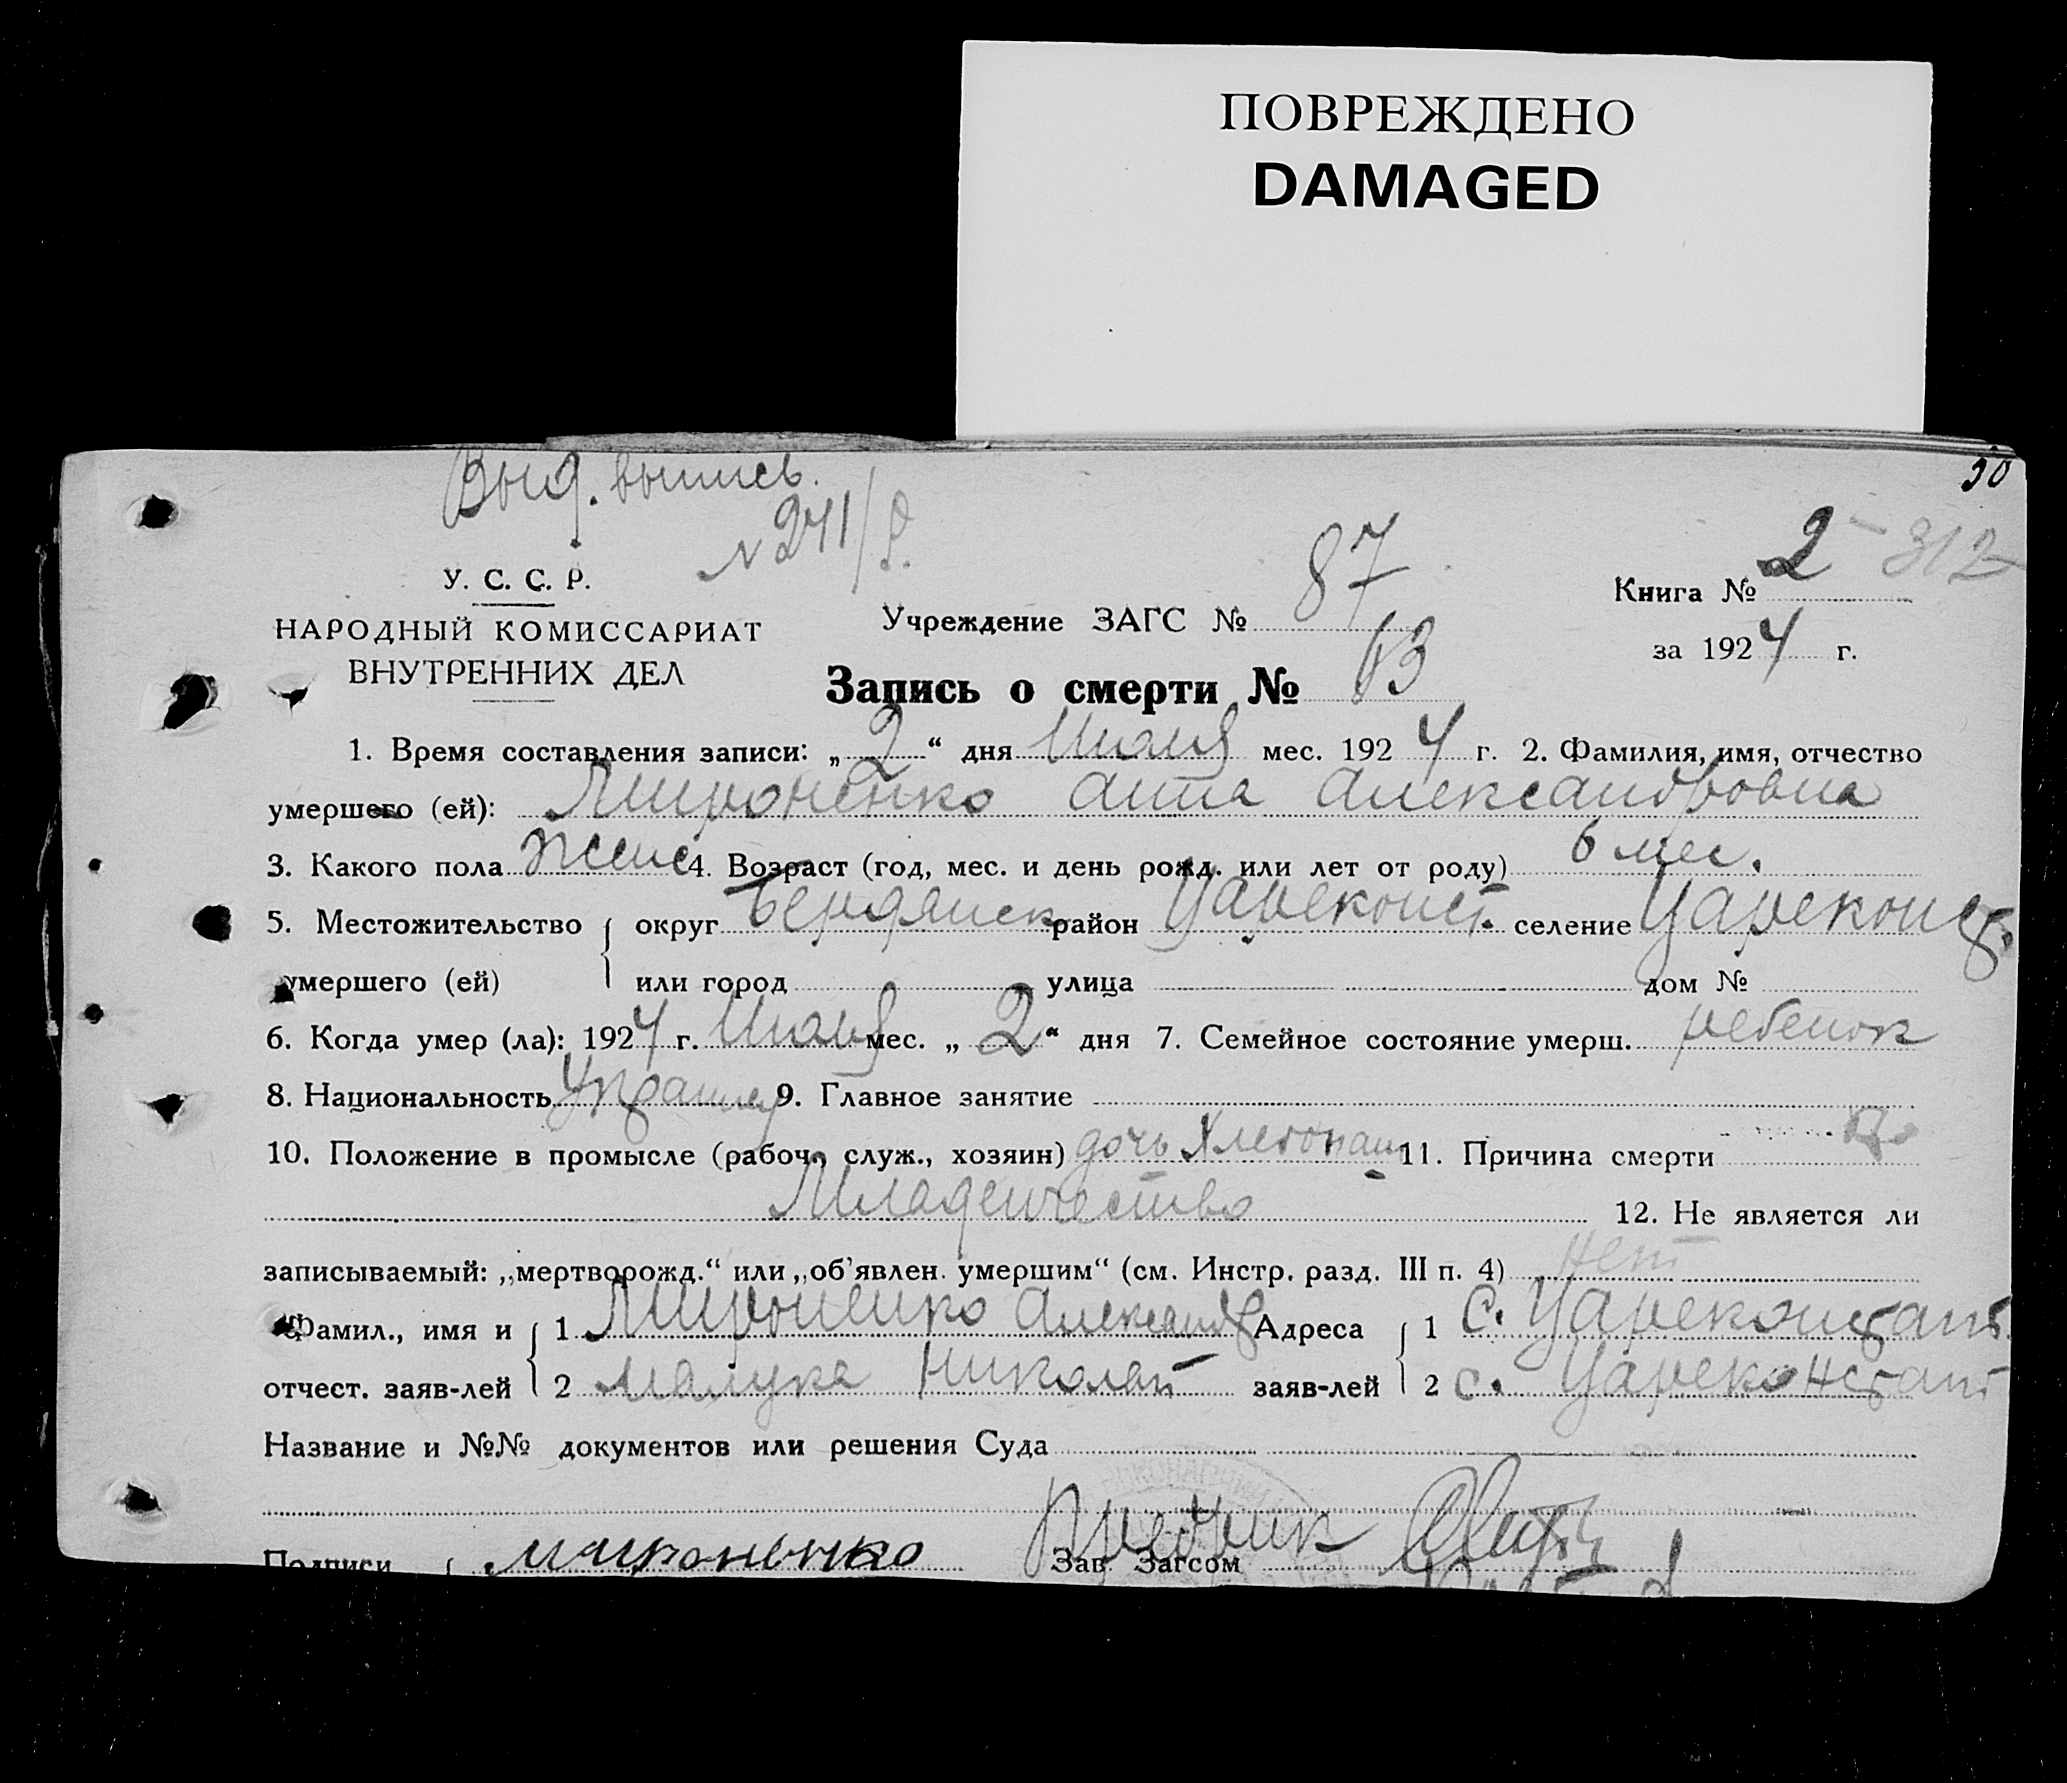 ПОВРЕЖДЕНО
DAMAGED
30
Выд. выпись.
N 241/
2 - 312
У. С. С. Р.
НАРОДНЫЙ КОМИССАРИАТ
ВНУТРЕННИХ ДЕЛ
Учреждение ЗАГС № 87
Книга № 2
за 1924 г.
Запись о смерти № 63
1. Время составления записи: „2“ дня Июля мес. 1924 г. 2. Фамилия, имя, отчество
умершего (ей): Мироненко Анна Александровна
3. Какого пола женс 4. Возраст (год, мес. и день рожд. или лет от роду) 6 мес.
5. Местожительство { округ Бердянск район Цареконст. селение Цареконст.
умершего (ей) или город улица дом №
6. Когда умер (ла): 1924 г. Июля мес. „2“ дня 7. Семейное состояние умерш. ребенок
8. Национальность Украинец 9. Главное занятие
10. Положение в промысле (рабоч., служ., хозяин) дочь хлебопаш 11. Причина смерти
Младенчество 12. Не является ли
записываемый: „мертворожд.“ или „об'явлен. умершим“ (см. Инстр. разд. III п. 4) нет
Фамил., имя и { 1 Мироненко Александр Адреса { 1 с. Цареконстант.
отчест. заяв-лей 2 Николай заяв-лей 2 с. Цареконстант
Название и №№ документов или решения Суда
Подписи { Мироненко Зав Загсом